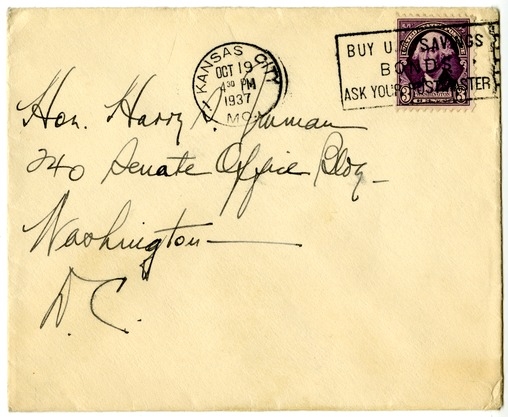 KANSAS CITY
OCT 19
4 30 PM
1937
MO.
BUY U.S. SAVINGS
BONDS
ASK YOUR POSTMASTER
3 3
Hon. Harry S. Truman
240 Senate Office Bldg.
Washington
D.C.